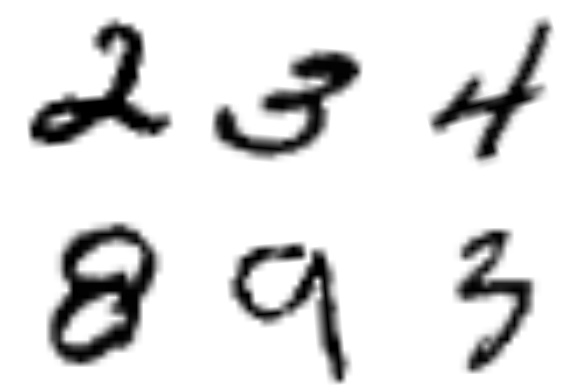 2 3 4
8 9 3